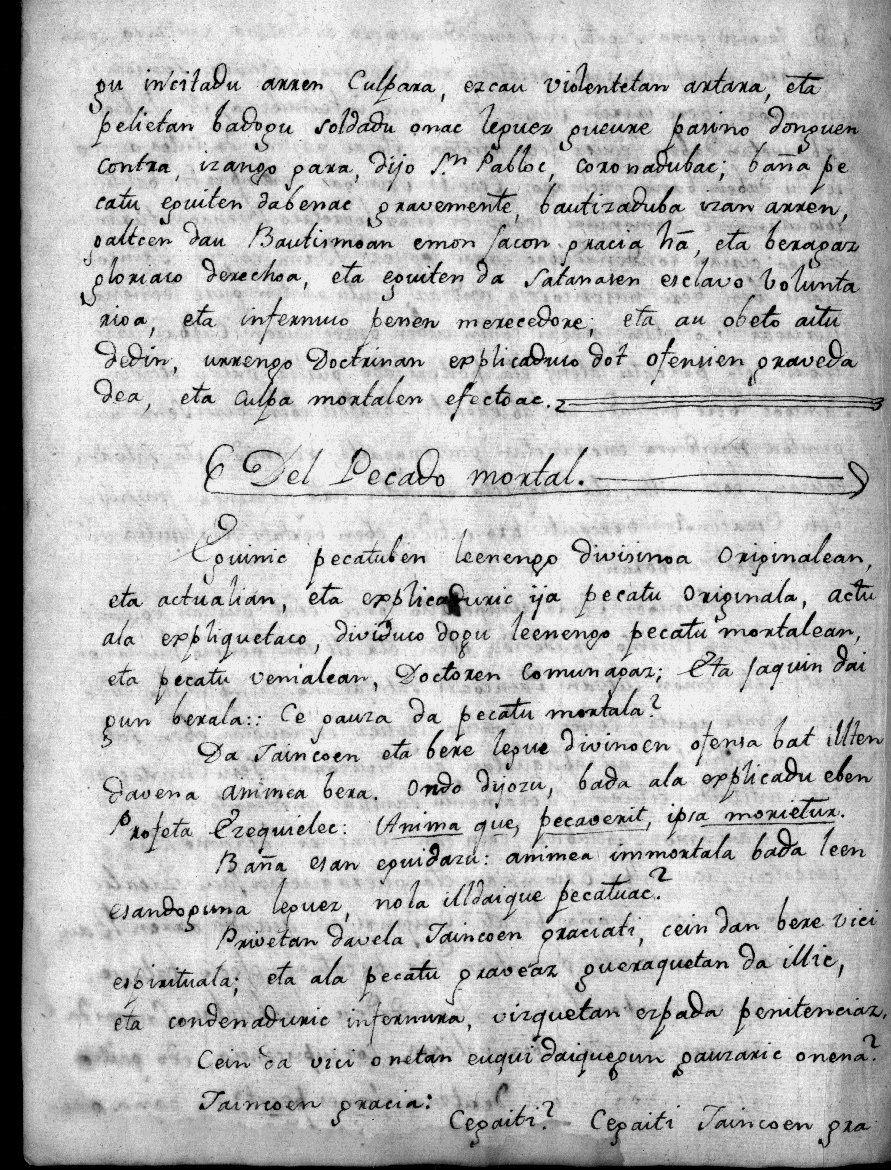 gu incitadu arren Culpara, ezcau violentetan artara, eta
pelietan badogu soldadu onac leguez gueure pasino donguen
contra, izango gara, dijo Sn. Pabloc, coronadubac; baña pe
catu eguiten dabenac gravemente, bautizaduba izan arren,
galtcen dau Bautismoan emon jacon gracia hā, eta beragaz
gloriaco derechoa, eta eguiten da Satanasen esclavo volunta
rioa, eta infernuco penen merecedore; eta au obeto aitu
dedin, urrengo Doctrinan explicaduco dot ofensien graveda
dea, eta culpa mortalen efectoac.
Del Pecado mortal.
Eguinic pecatuben leenengo divisinoa originalean,
eta actualian, eta explicaduric ija pecatu originala, actu
ala expliquetaco, dividuco dogu leenengo pecatu mortalean,
eta pecatu venialean, Doctoren comunagaz; Eta jaquin dai
gun berala:: Ce gauza da pecatu mortala?
Da Jaincoen eta bere legue divinoen ofensa bat illten
davena animea bera. Ondo dijozu, bada ala explicadu eben
Profeta Ezequielec: Anima que, pecaverit, ipsa morietur.
Baña esan eguidazu: animea immortala bada leen
esandoguna leguez, nola illdaique pecatuac?
Privetan davela Jaincoen graciati, cein dan bere vici
espirituala; eta ala pecatu graveaz gueraquetan da illic,
eta condenaduric infernura, vizquetan ezpada penitenciaz.
Cein da vici onetan euqui daiquegun gauzaric onena?
Jaincoen gracia:
Cegaiti? Cegaiti Jaincoen gra